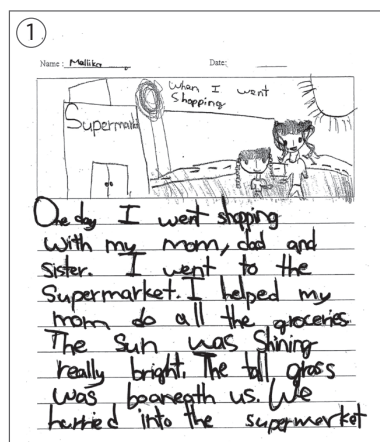 1
Name: Mallika
Date:
When I went
Shopping
Supermarket
One day I went shopping
with my mom, dad and
sister. I went to the
Supermarket. I helped my
mom do all the groceries.
The Sun was Shining
really bright. The tall grass
was beaneath us. We
hurried into the supermarket